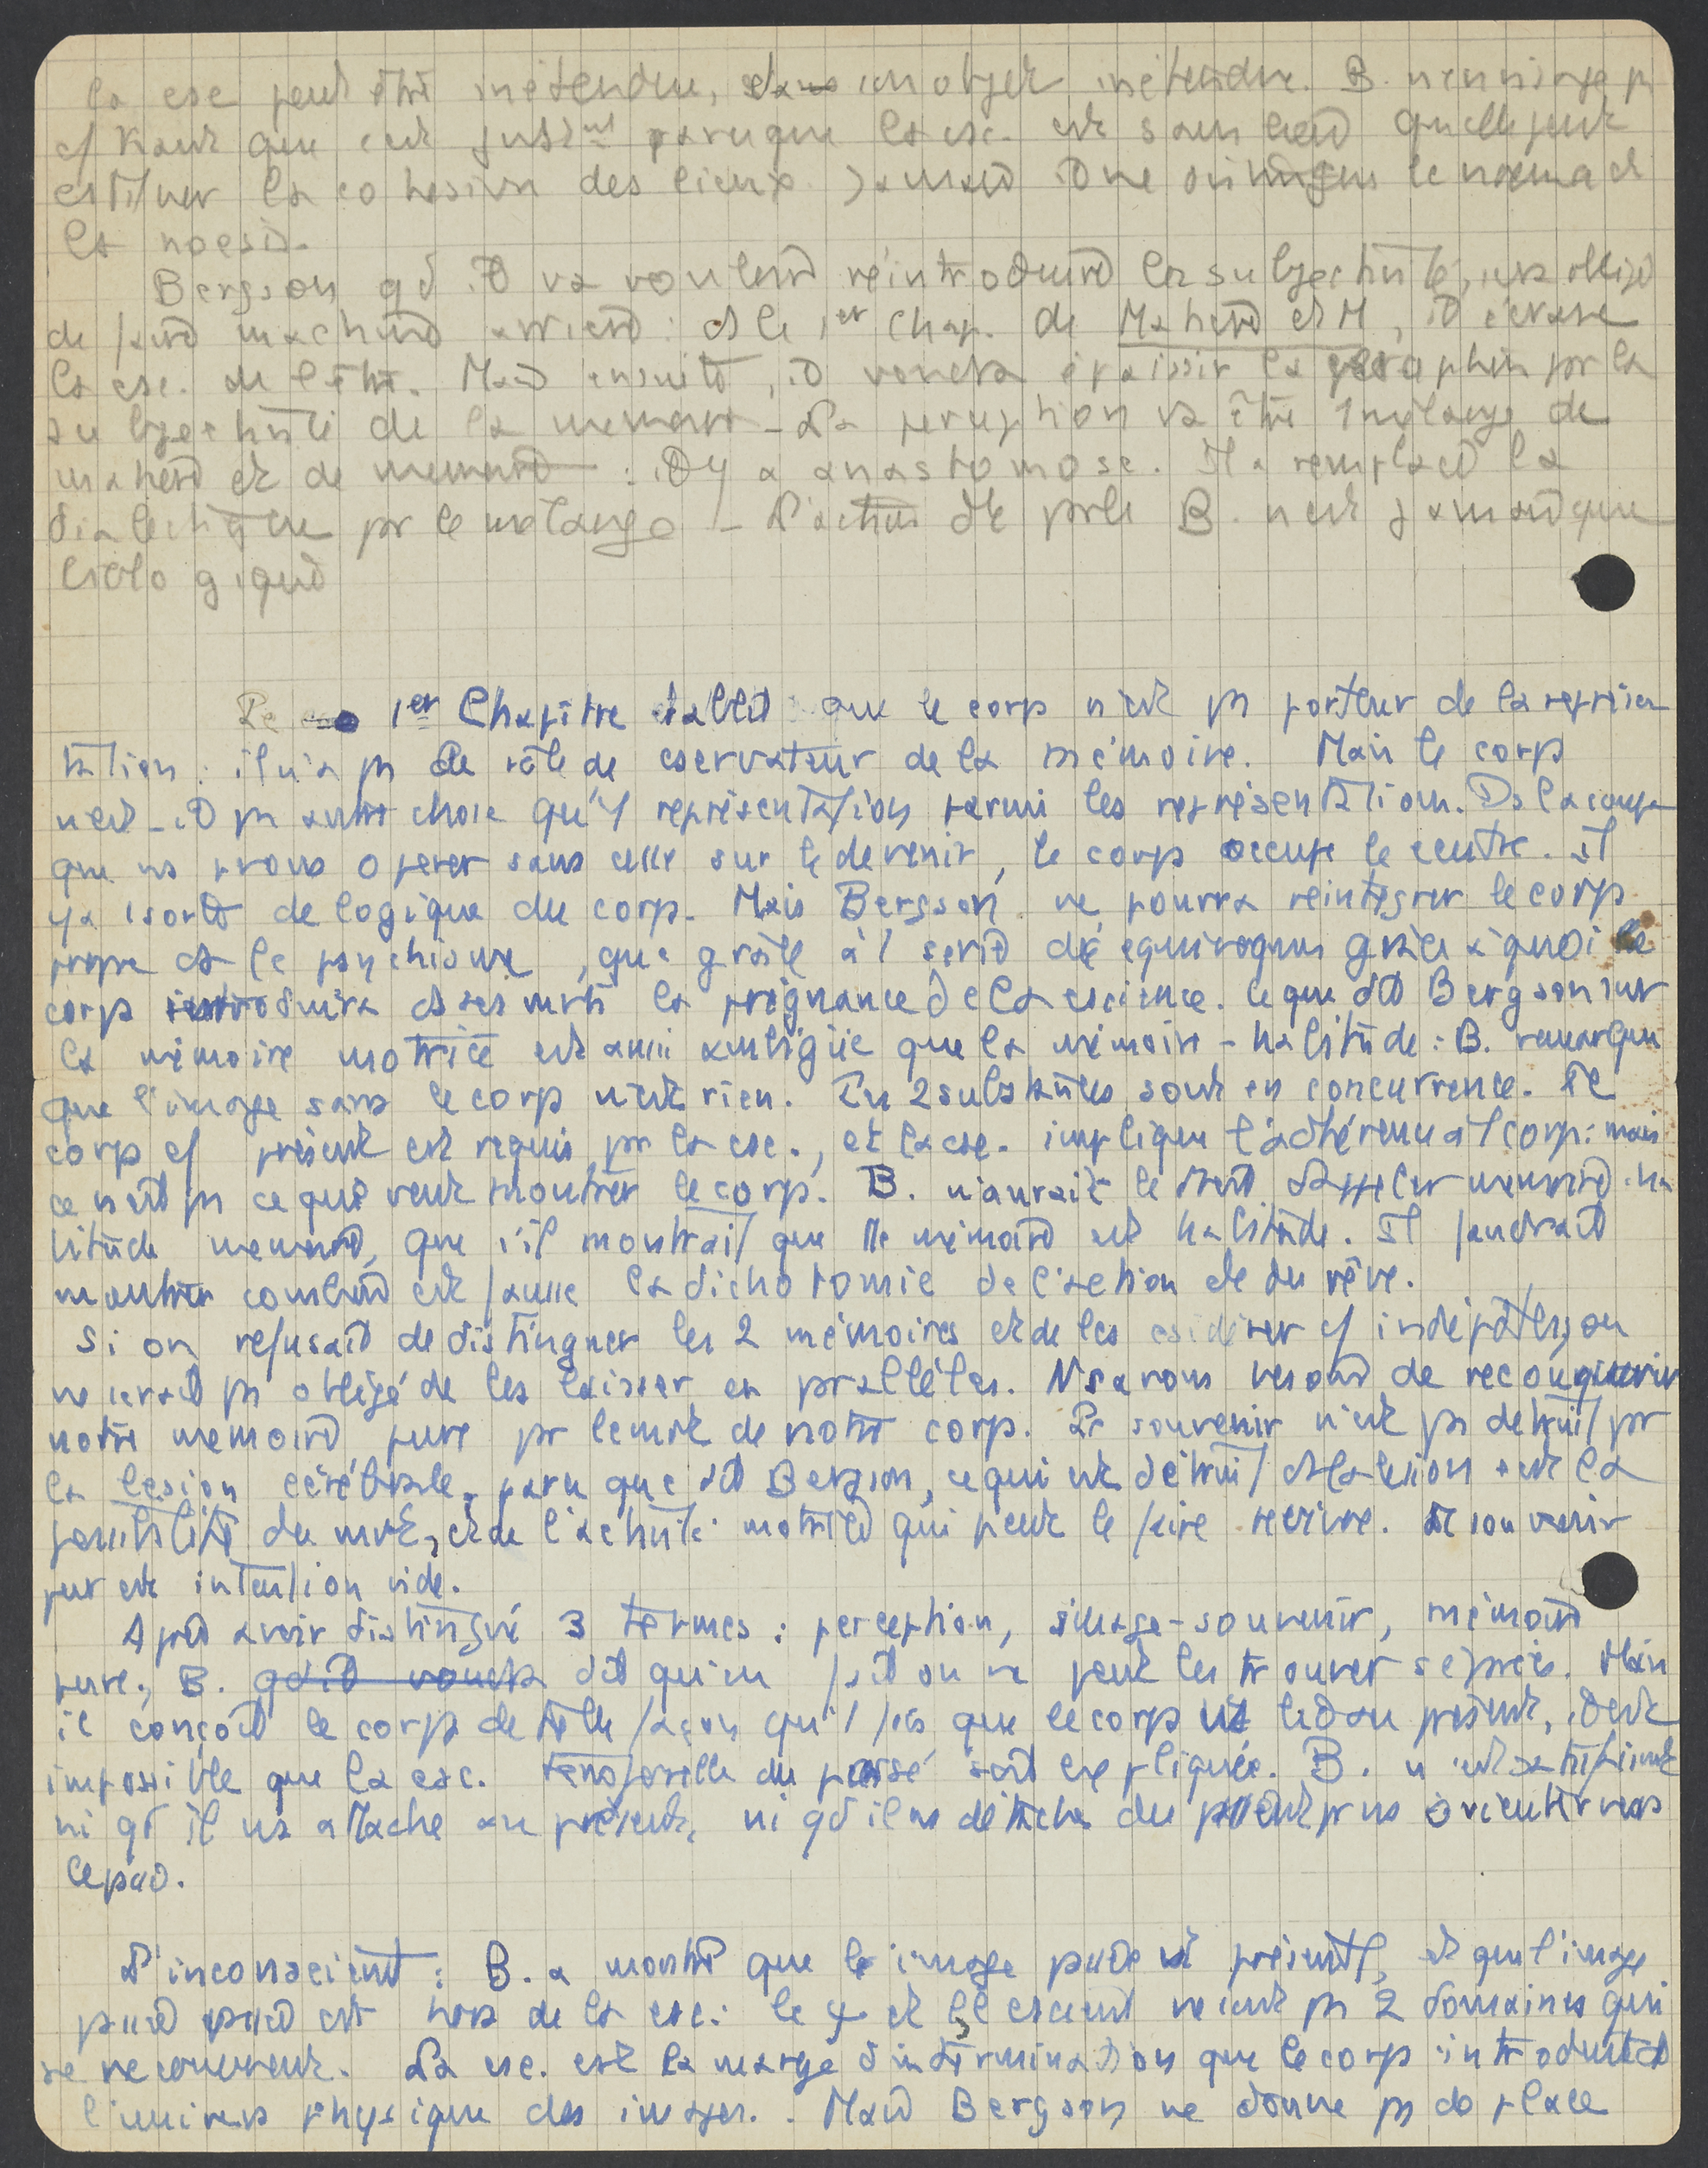 la csc peut être inétendue, dans un objet inétendu. B. n'envisage ps
cf Kant que c'est justmt parce que la csc. est sans lieu qu'elle peut
cstituer la cohésion des lieux. Jamais il ne distingue le noema et
la noesis.
Bergson qd il va vouloir réintroduire la subjectivité, sera obligé
de faire machine arrière : ds le 1er chap. de Matière et M, il écrase
la csc. de l'être. Mais ensuite, il voudra épaissir la perception par la
subjectivité de la mémoire – La perception va être 1 mélange de
matière et de mémoire : il y a anastomose. Il a remplacé la
dialectique par le mélange – L'action de B. n'est jamais que
biologique
Le 1er Chapitre établit que le corps n'est ps porteur de la représen
tation : il n'a ps de rôle de cservateur de la mémoire. Mais le corps
n'est-il ps autre chose qu'1 représentation parmi les représentations. Ds la coupe
que ns pvons opérer sans cesse sur le devenir, le corps occupe le centre. Il
y a 1 sorte de logique du corps. Mais Bergson ne pourra réintégrer le corps
propre ds le psychisme, que grâce à 1 série de équivoques grâce à quoi le
corps introduira ds ses mvts la prégnance de la cscience. Ce que dit Bergson sur
la mémoire motrice est aussi ambigüe que la mémoire-habitude : B. remarque
que l'image sans le corps n'est rien. Les 2 substantités sont en concurrence. Le
corps cf présent est requis par la csc., et la csc. implique l'adhérence à 1 corps : mais
ce n'est ps ce que veut montrer le corps. B. n'aurait le droit d'appeler mémoire-ha
bitude mémoire, que s'il montrait que la mémoire est habitude. Il faudrait
montrer combien est fausse la dichotomie de l'action et du rêve.
Si on refusait de distinguer les 2 mémoires et de les csidérer cf indépdtes, on
ne serait ps obligé de les laisser en prallèles. Ns avons besoin de reconquérir
notre mémoire pure par le mvt de notre corps. Le souvenir n'est ps détruit par
la lésion cérébrale, parce que dit Bergson, ce qui est détruit ds la lésion c'est la
possibilité du mvt, et de l'activité motrice qui peut le faire revivre. Le souvenir
pur est intention vide.
Après avoir distingué 3 termes : perception, image-souvenir, mémoire
pure, B. qd il voudra dit qu'en fait on ne peut les trouver séprés. Mais
il conçoit le corps de telle façon qu'1 fois que le corps est lié au présent, il est
impossible que la csc. temporelle du passé soit expliquée. B. n'est satisfaisant
ni qd il ns attache au présent, ni qd il ns détache du présent pr ns orienter vers
le passé.
L'inconscient : B. a montré que le image passée est présente, et que l'image
passée est hors de la csc : le et le cscient ne sont ps 2 domaines qui
se recouvrent. La csc. est la marge d'indétermination que le corps introduit ds
l'univers physique des images. Mais Bergson ne donne ps de place